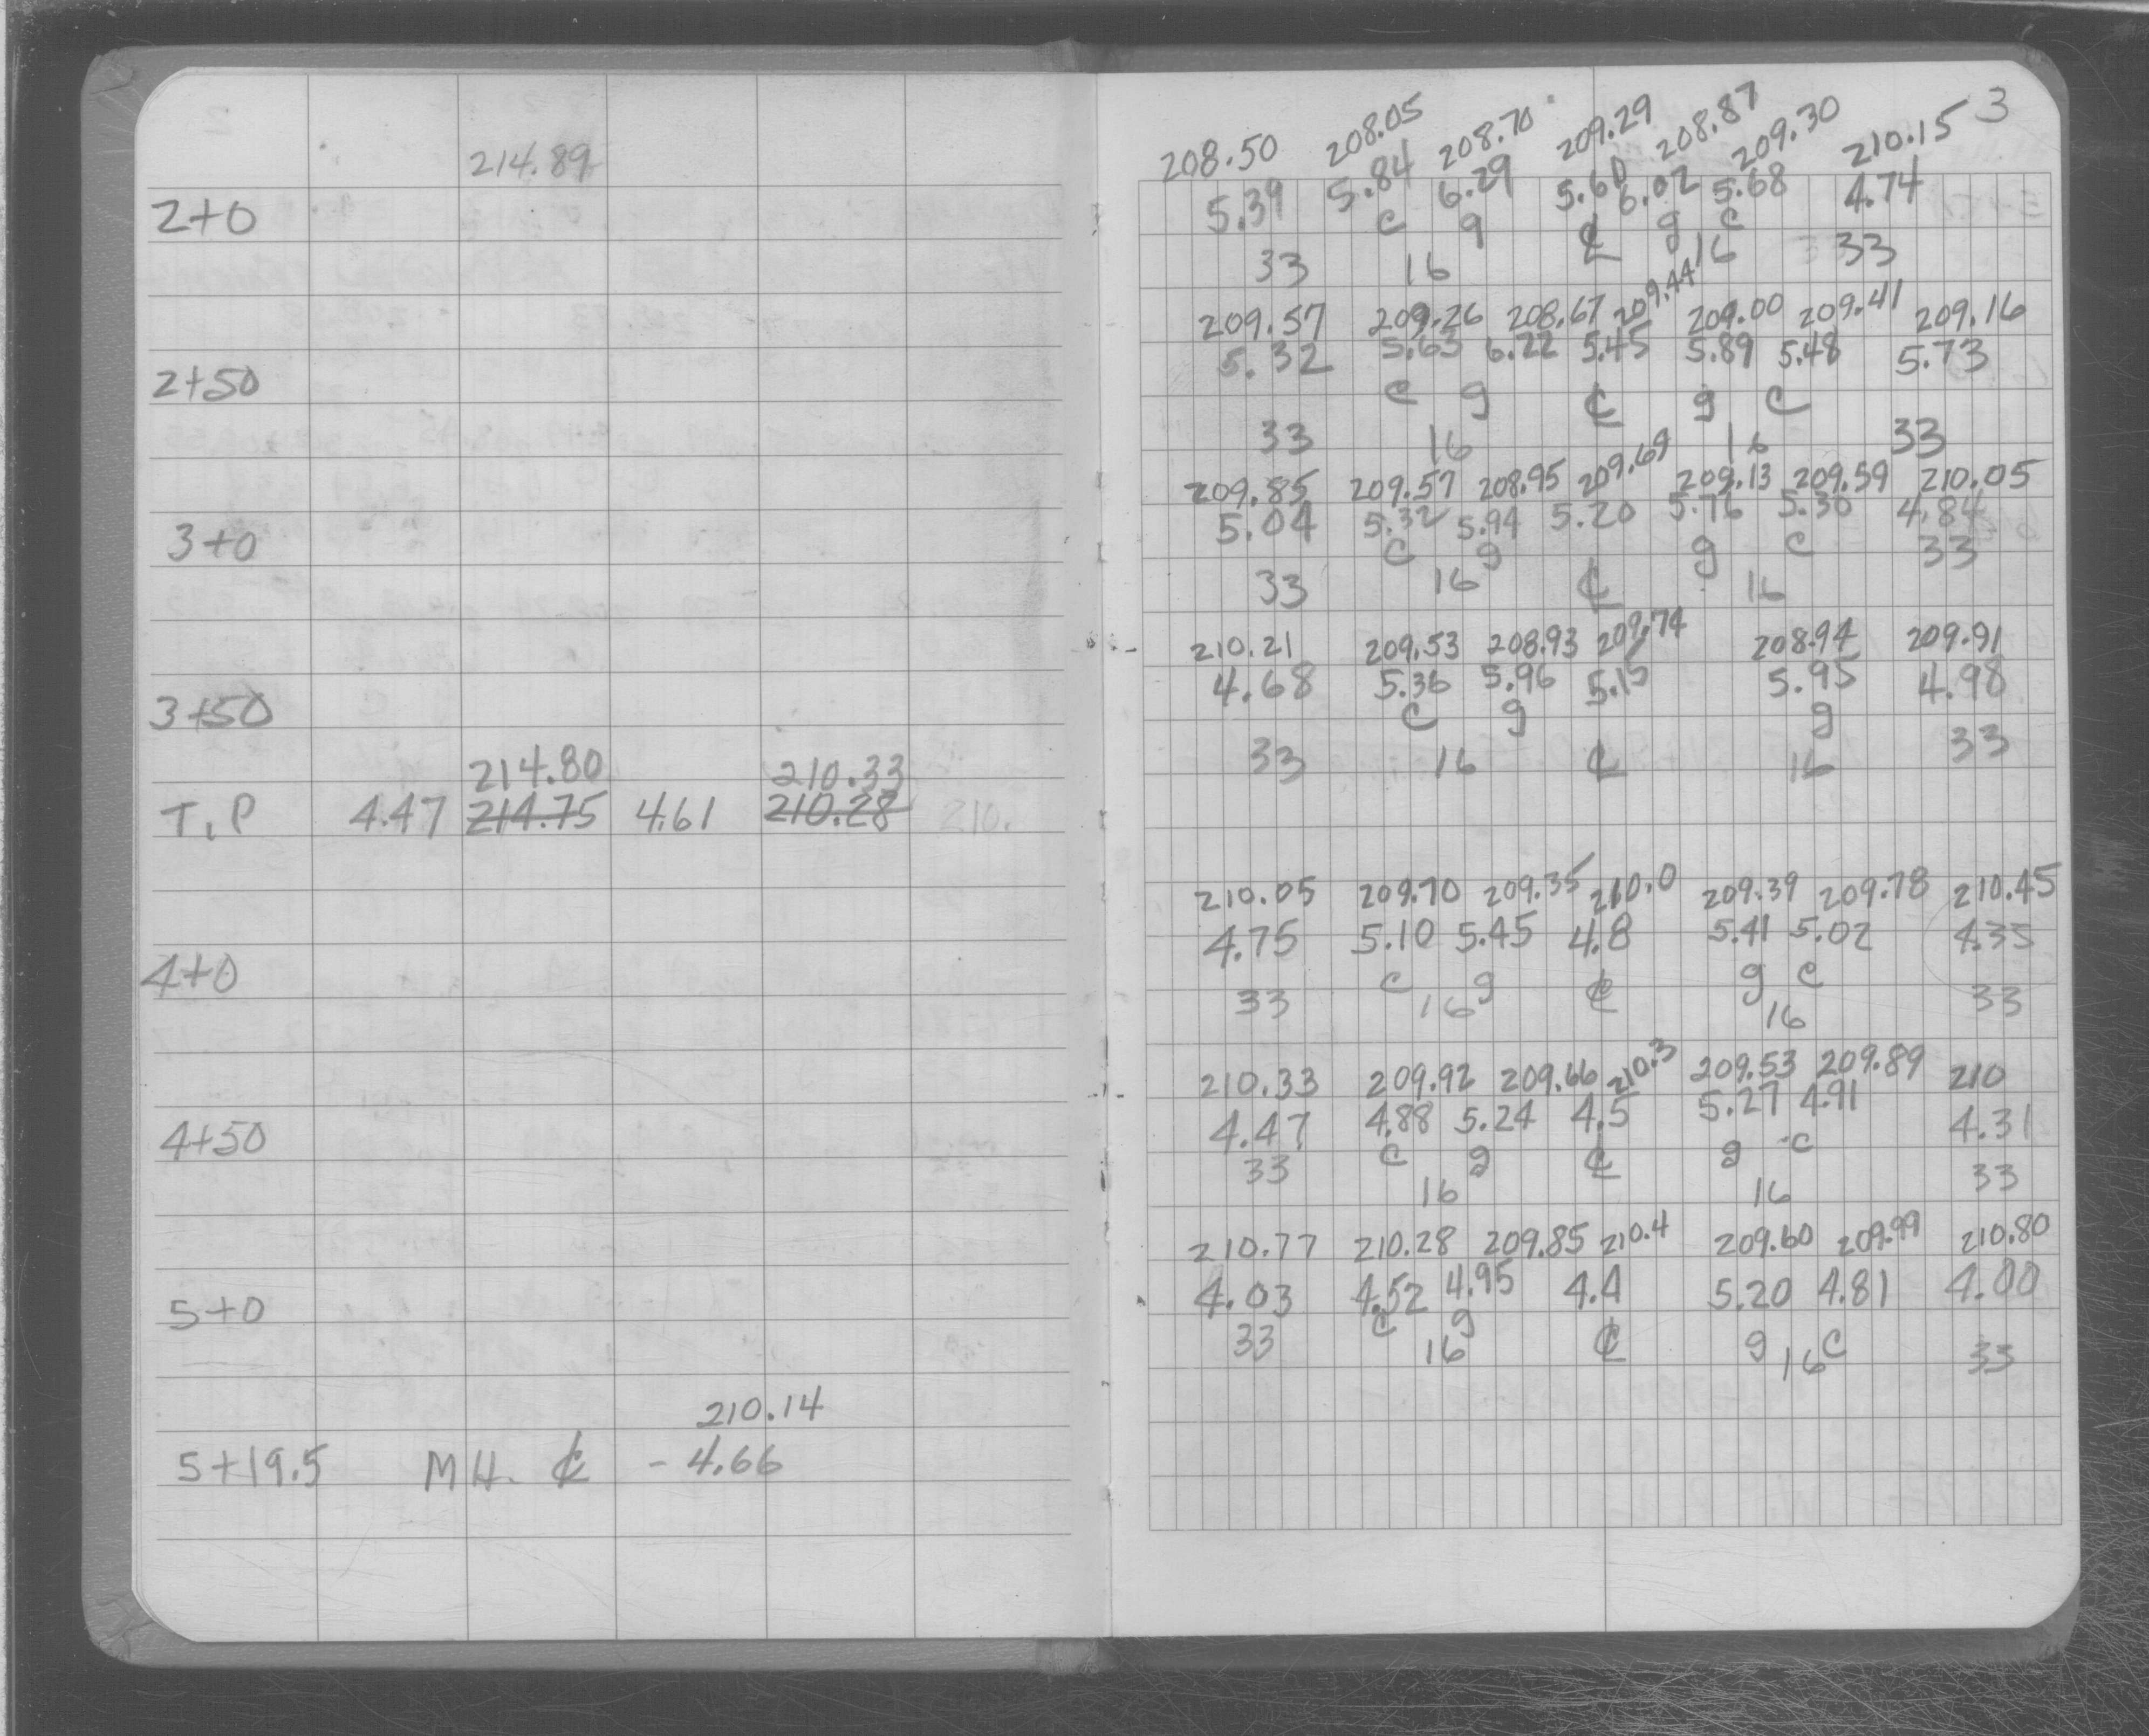 214.89
2+0
2+50
3+0
3+50
214.80 210.33
T.P 4.47 214.75 4.61 210.28 210.
4+0
4+50
5+0
210.14
5+19.5 M H. ℄ - 4.66
3
208.50 208.05 208.70 209.29 208.87 209.30 210.15
5.39 5.84 6.29 5.60 6.02 5.68 4.74
c g ℄ g c
33 16 16 33
209.57 209.26 208.67 209.44 209.00 209.41 209.16
5.32 5.63 6.22 5.45 5.89 5.48 5.73
c g ℄ g c
33 16 16 33
209.85 209.57 208.95 209.69 209.13 209.59 210.05
5.04 5.32 5.94 5.20 5.76 5.30 4.84
c g g c 33
33 16 ℄ 16
210.21 209.53 208.93 209.74 208.94 209.91
4.68 5.36 5.96 5.15 5.95 4.98
c g g
33 16 ℄ 16 33
210.05 209.70 209.35 210.0 209.39 209.78 210.45
4.75 5.10 5.45 4.8 5.41 5.02 4.35
c g ℄ g c
33 16 16 33
210.33 209.92 209.66 210.3 209.53 209.89 210
4.47 4.88 5.24 4.5 5.27 4.91 4.31
33 c g ℄ g c
16 16 33
210.77 210.28 209.85 210.4 209.60 209.99 210.80
4.03 4.52 4.95 4.4 5.20 4.81 4.00
c g
33 16 ℄ g 16 c 33